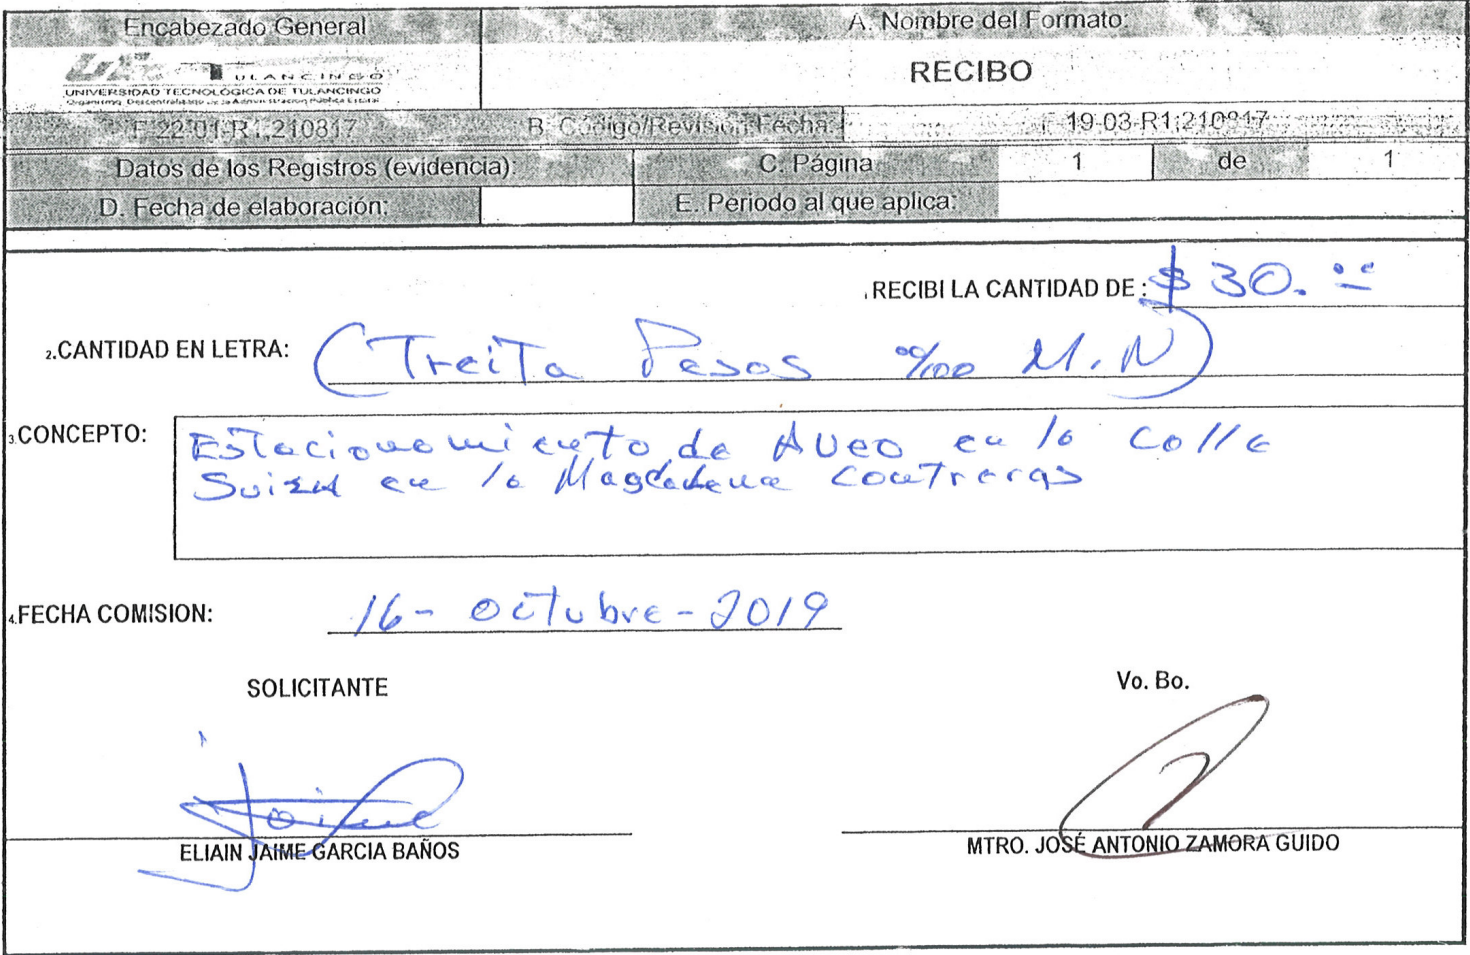 Encabezado General
A. Nombre del Formato:
ULANCINGO
UNIVERSIDAD TECNOLÓGICA DE TULANCINGO
RECIBO
F-22-01-R1;210817
B. Código/Revisión/Fecha:
F-19-03-R1;210817
Datos de los Registros (evidencia):
C. Página
1 de 1
D. Fecha de elaboración:
E. Periodo al que aplica:
1.RECIBI LA CANTIDAD DE: $ 30.00
2.CANTIDAD EN LETRA: (Treita Pesos 00/100 M.N)
3.CONCEPTO: Estacionamiento de Aveo en la Calle
Suiza en la Magdalena Contreras
4.FECHA COMISION: 16-octubre-2019
SOLICITANTE
Vo. Bo.
ELIAIN JAIME GARCIA BAÑOS
MTRO. JOSÉ ANTONIO ZAMORA GUIDO